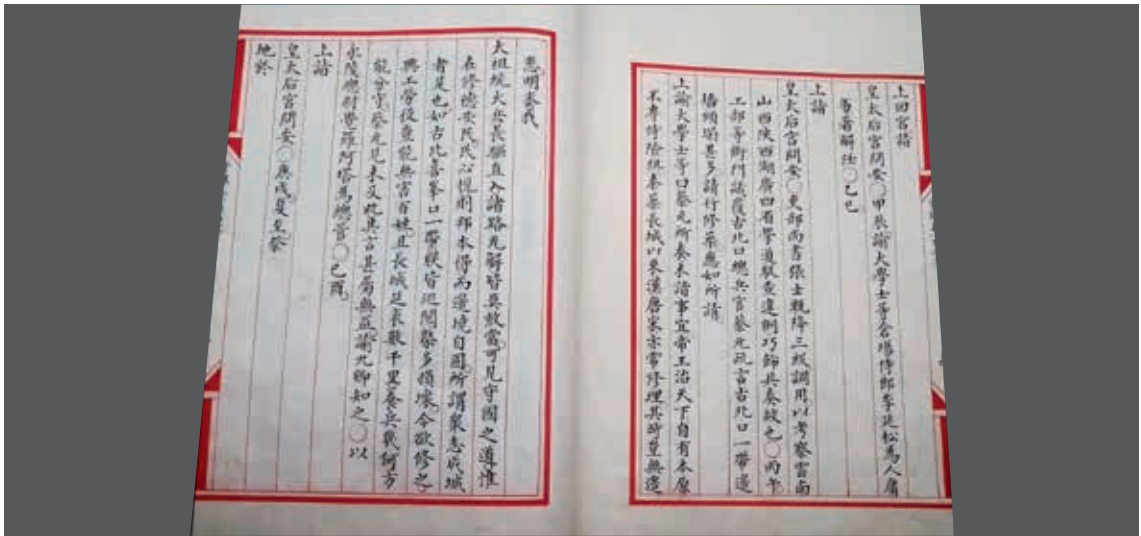 上回宮詣
皇太后宮問安○甲辰諭大學士等倉場侍郎李廷松為人庸
劣著解任○乙巳
上詣
皇太后宮問安○吏部尚書張士甄降三級調用以考察雲南
山西陝西湖廣四省學道駁查違例巧飾具奏故也○丙午
工部等衙門議覆古北口總兵官蔡元疏言古北口一帶邊
墻傾塌甚多請行修築應如所請
上諭大學士等曰蔡元所奏未諳事宜帝王治天下自有本原
不專恃險阻秦築長城以來漢唐宋亦常修理其時豈無邊
患明末我
太祖統大兵長驅直入諸路瓦解皆莫敢當可見守國之道惟
在修德安民民心悅則邦本得而邊境自固所謂衆志成城
者是也如古北喜峯口一帶朕皆巡閱槩多損壞今欲修之
興工勞役豈能無害百姓且長城延袤數千里養兵幾何方
能分守蔡元見未及此其言甚屬無益諭九卿知之○以
永陵總尉覺羅阿塔為總管○己酉
上詣
皇太后宮問安○庚戌夏至祭
地於